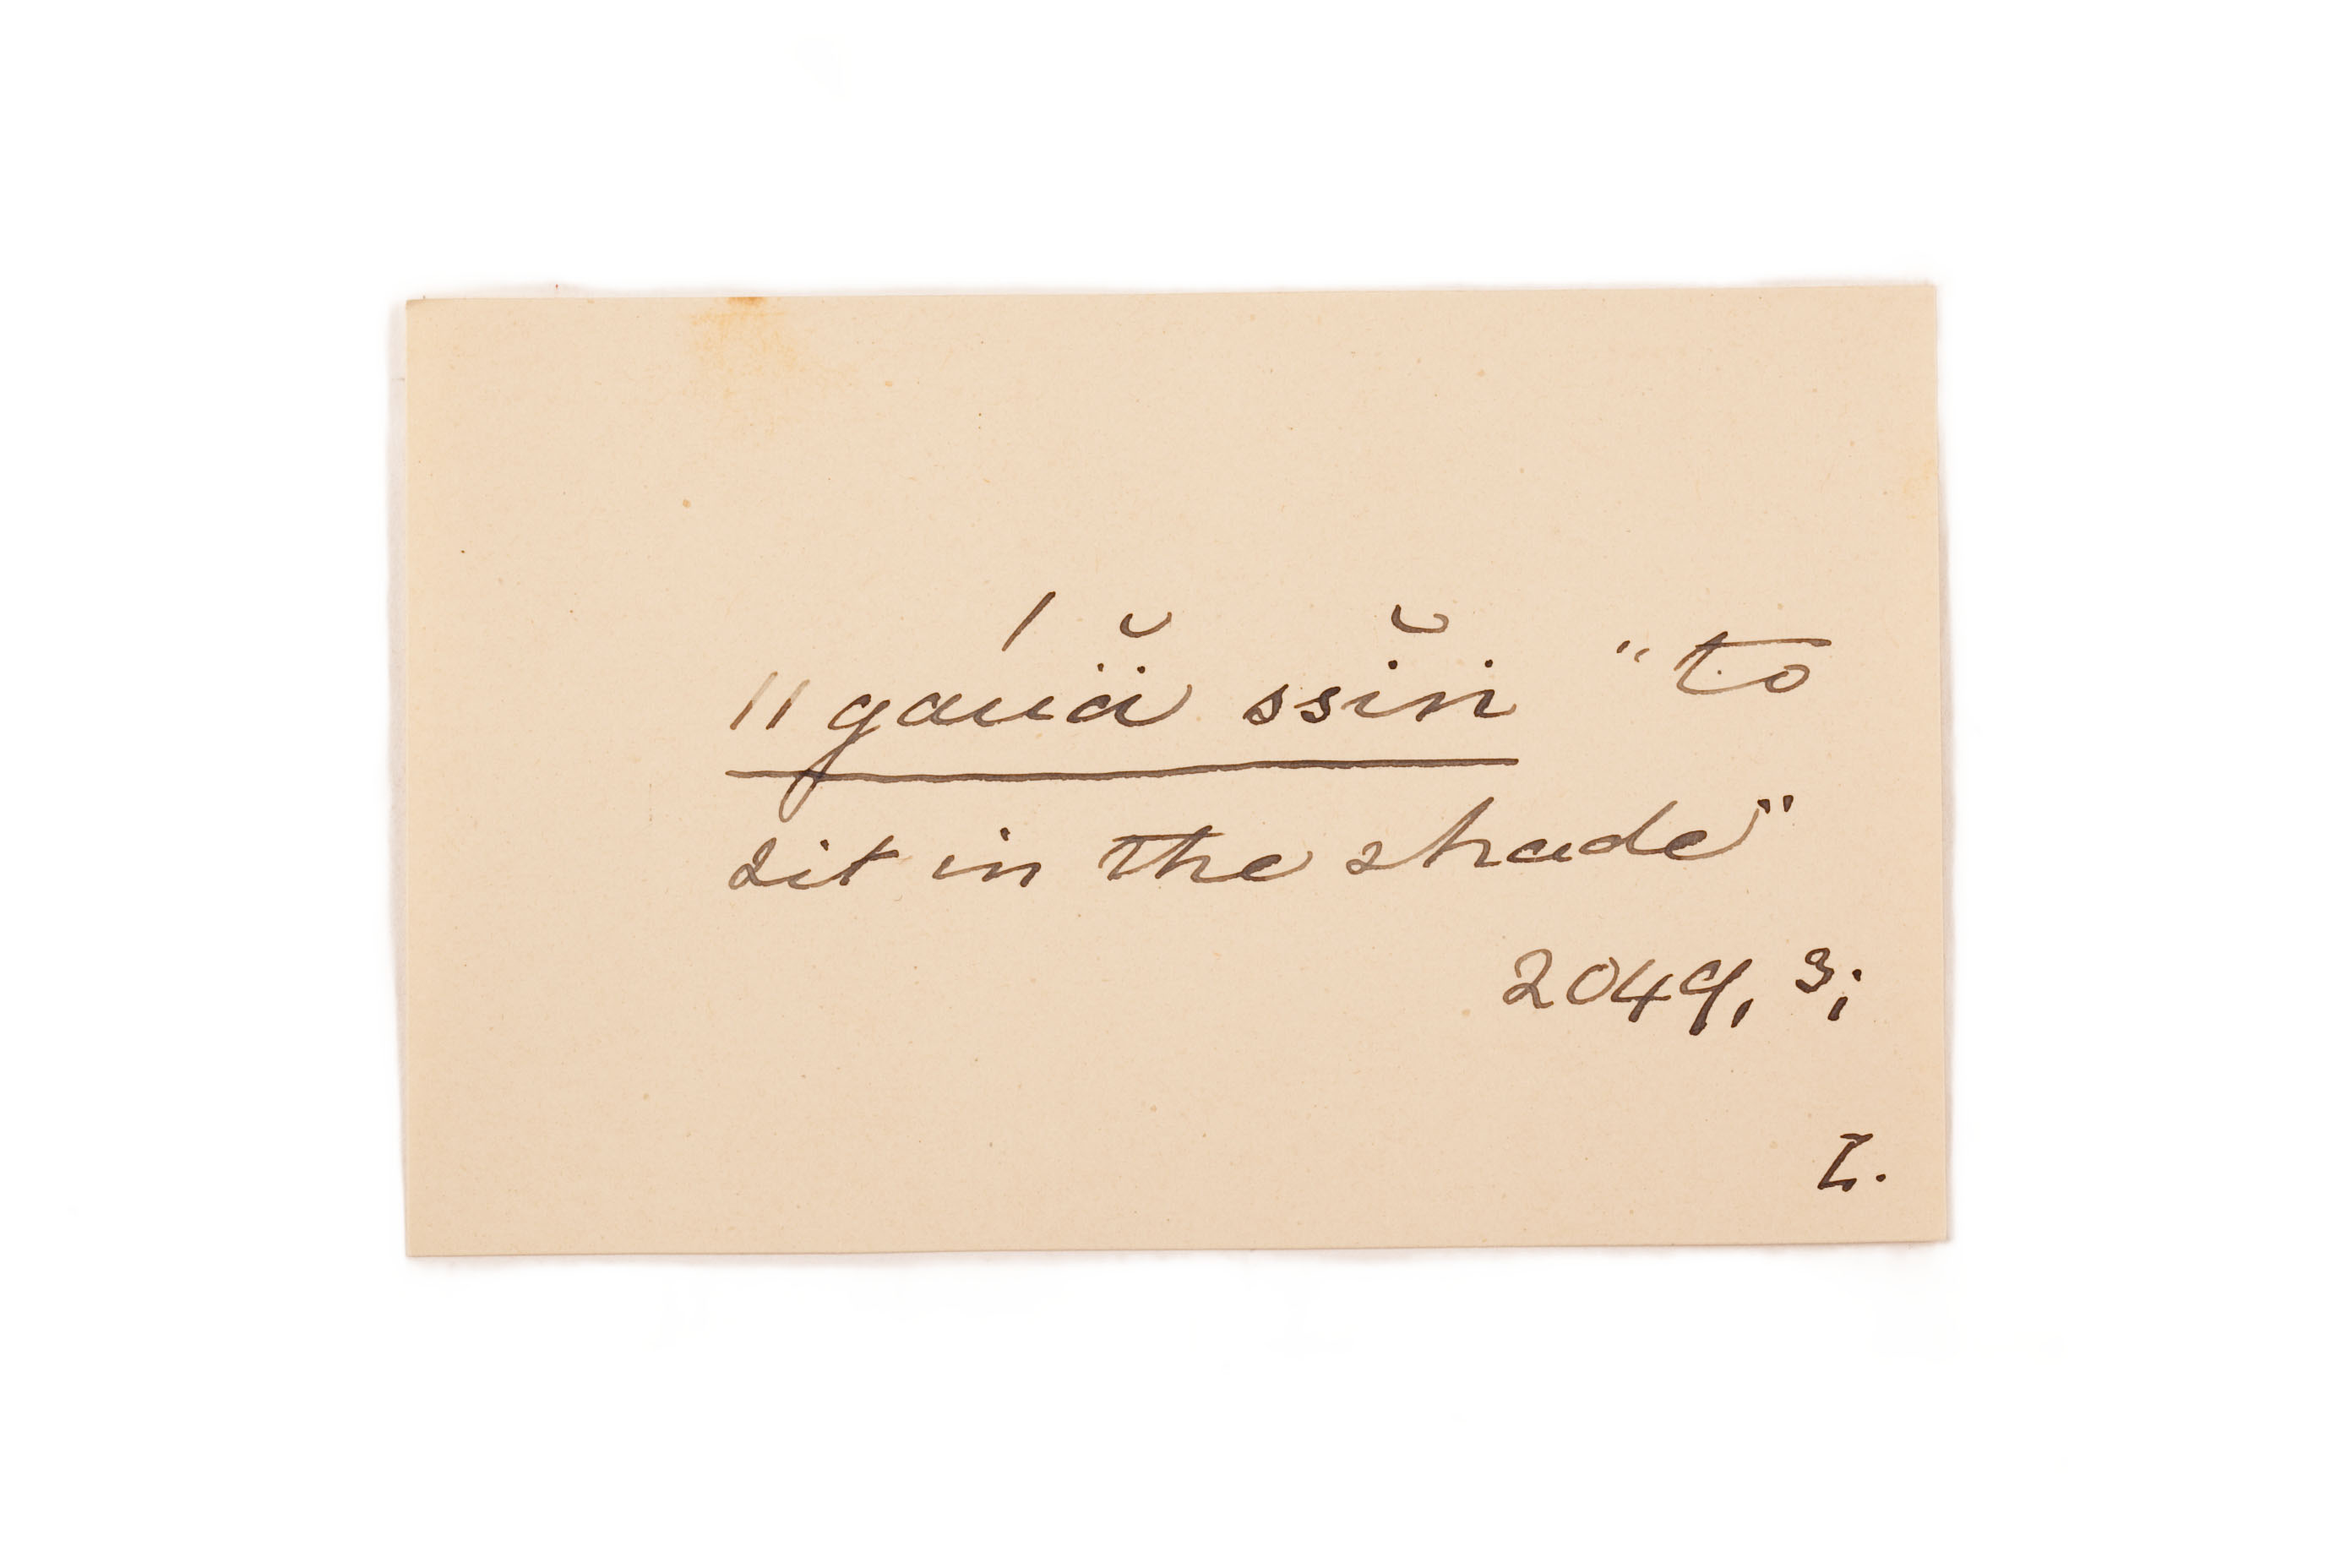 ǁgaúä̆ ssĭn "to
sit in the shade"
2049, 3;
L.